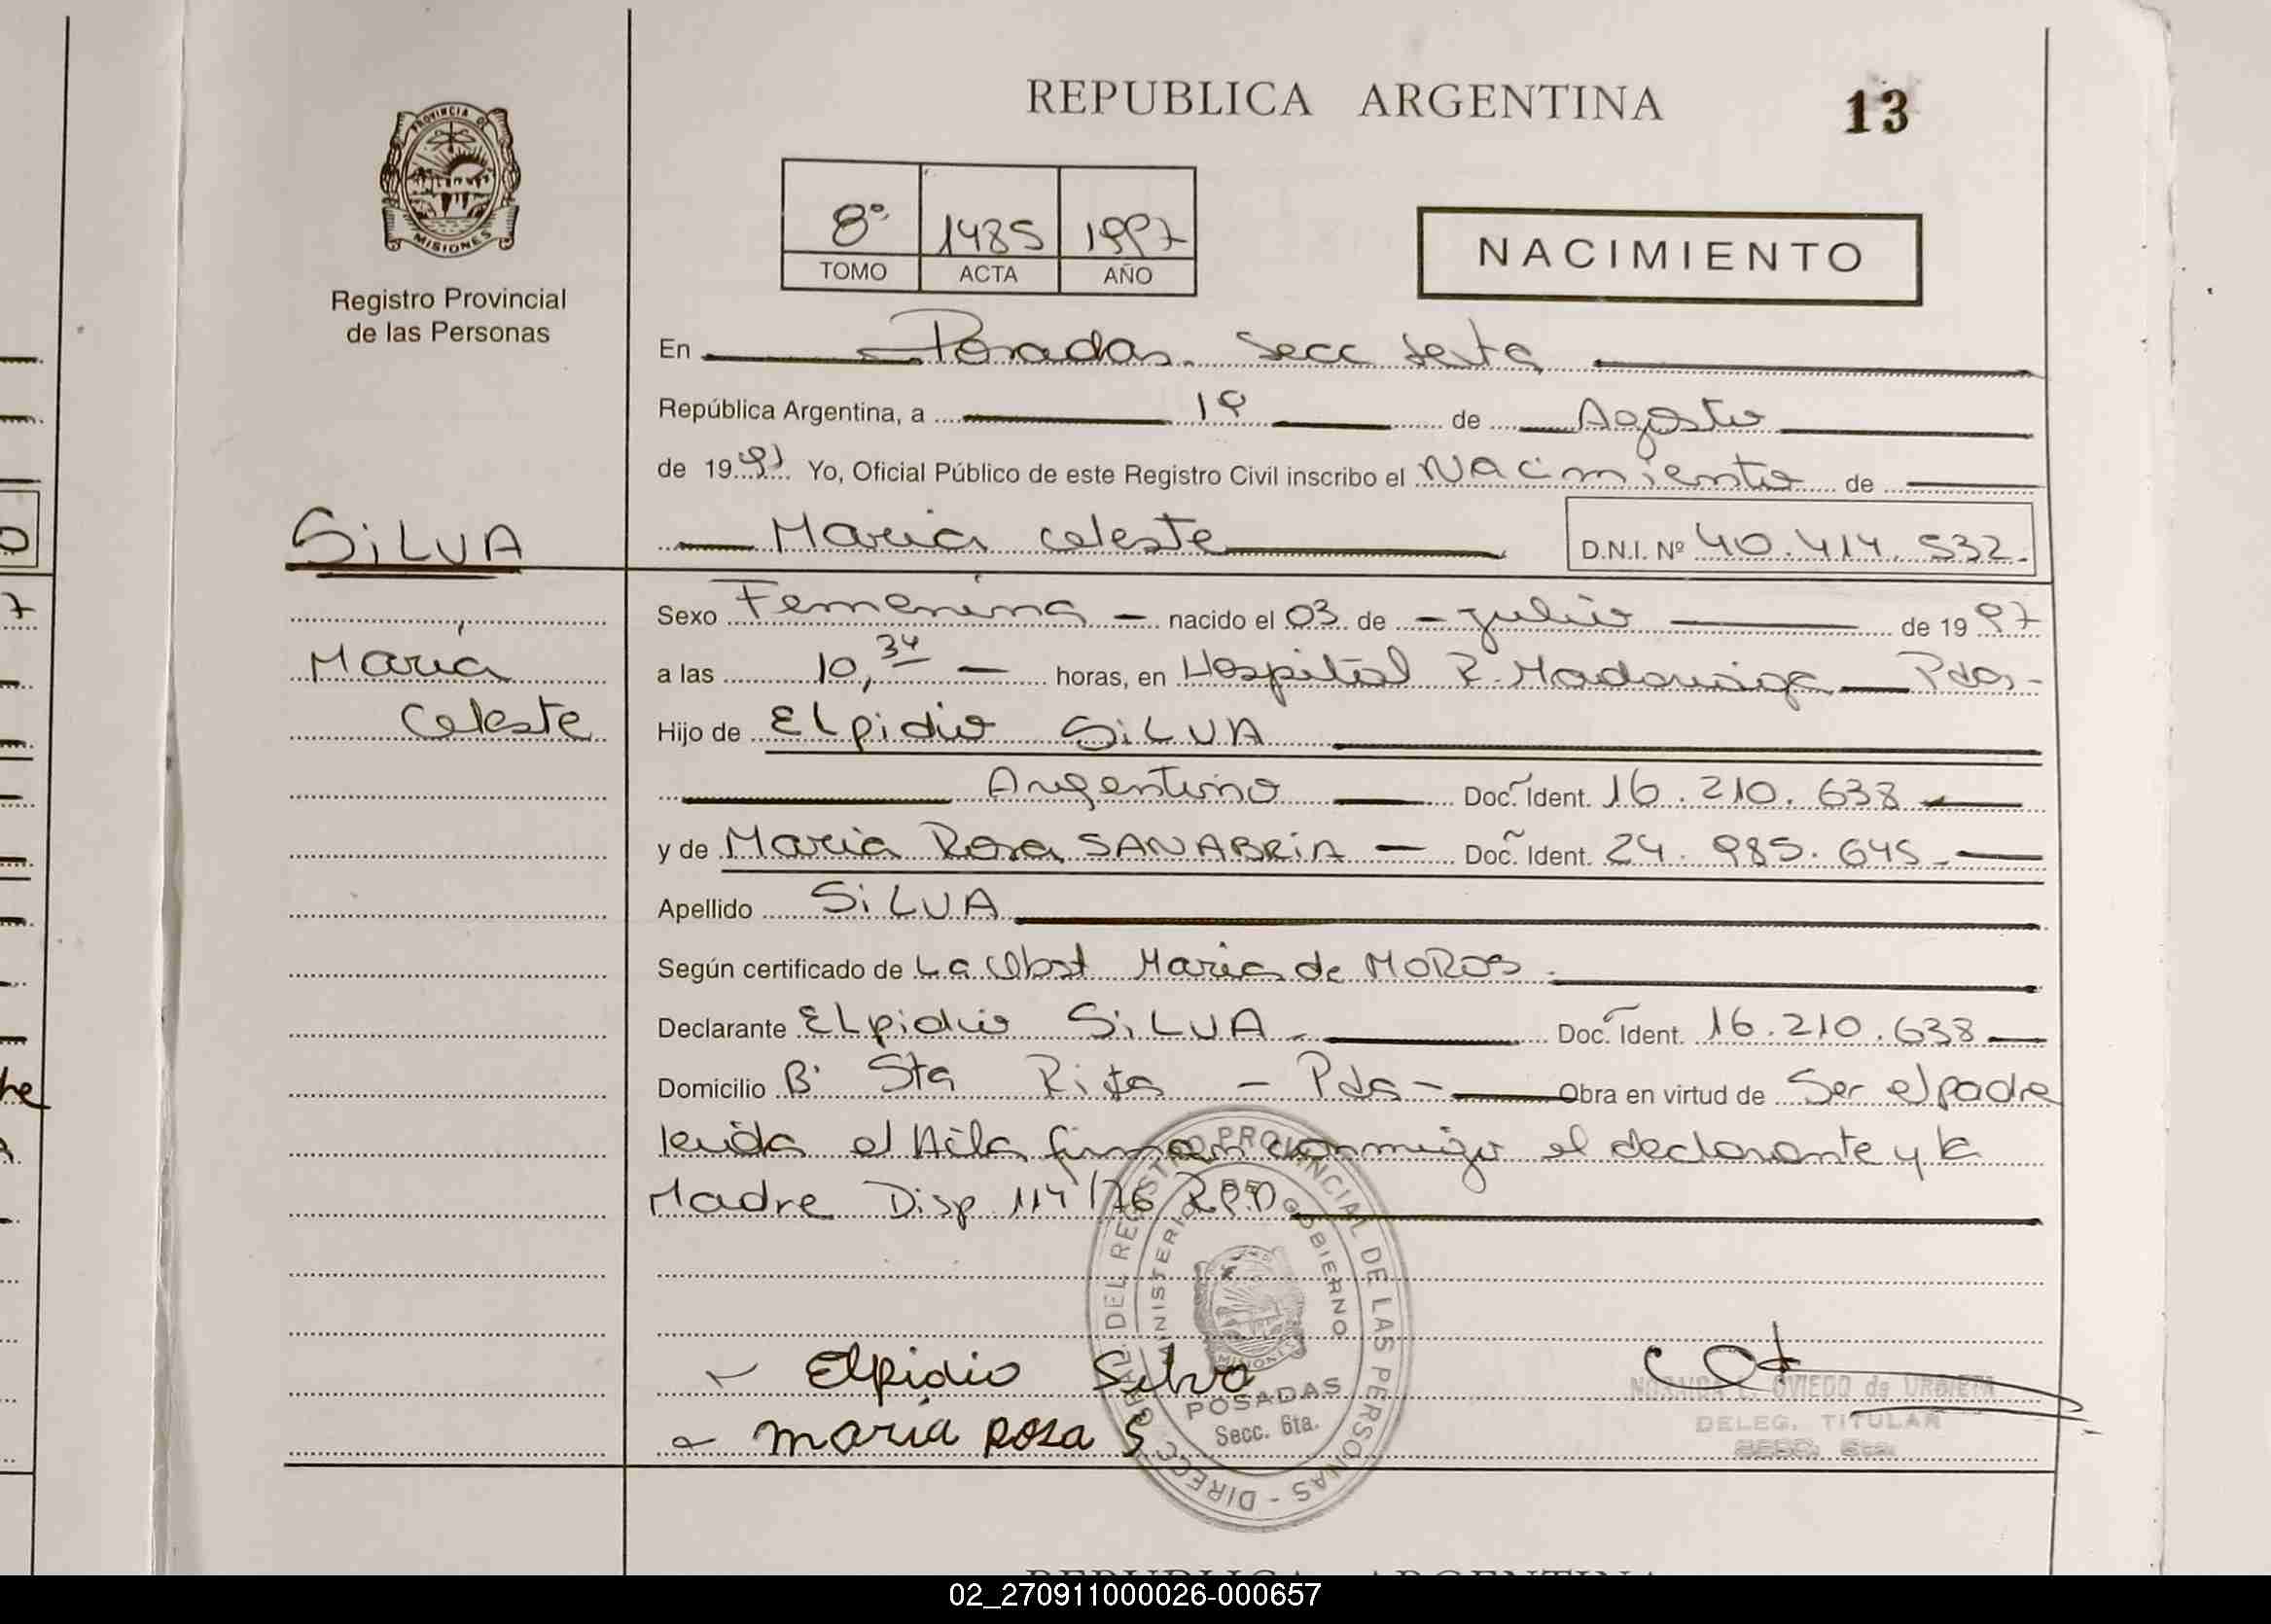 REPUBLICA ARGENTINA
13
PROVINCIA DE
MISIONES
Registro Provincial
de las Personas
8º 1485 1997
TOMO ACTA AÑO
NACIMIENTO
En Posadas. Secc sexta
República Argentina, a 1º de Agosto
de 1997 Yo, Oficial Público de este Registro Civil inscribo el Nacimiento de
SiLVA
Maria Celeste D.N.I. Nº 40.414.532.
Sexo Femenina - nacido el 03 de - julio de 1997
Maria
a las 10,34 - horas, en Hospital R. Madariaga - Pdas-
Celeste
Hijo de ELpidio SiLVA
Argentino Doc. Ident. 16.210.638
y de Maria Rosa SANABRiA - Doc. Ident. 24.985.645-
Apellido SiLVA
Según certificado de La Obst Maria de MOROS.
Declarante ELpidio SiLVA - Doc. Ident. 16.210.638
Domicilio Bº Sta Rita - Pdas- Obra en virtud de Ser el padre
leida el Acta firman conmigo el declarante y la
Madre Disp 114/76 R.P.
DIRECC. GRAL. DEL REGISTRO PROVINCIAL DE LAS PERSONAS -
MINISTERIO DE GOBIERNO
MISIONES
POSADAS
Secc. 6ta.
Elpidio Silva
maria rosa S
OVIEDO de URBIETA
DELEG. TITULAR
SECC. 6ta.
REPUBLICA ARGENTINA
02_270911000026-000657